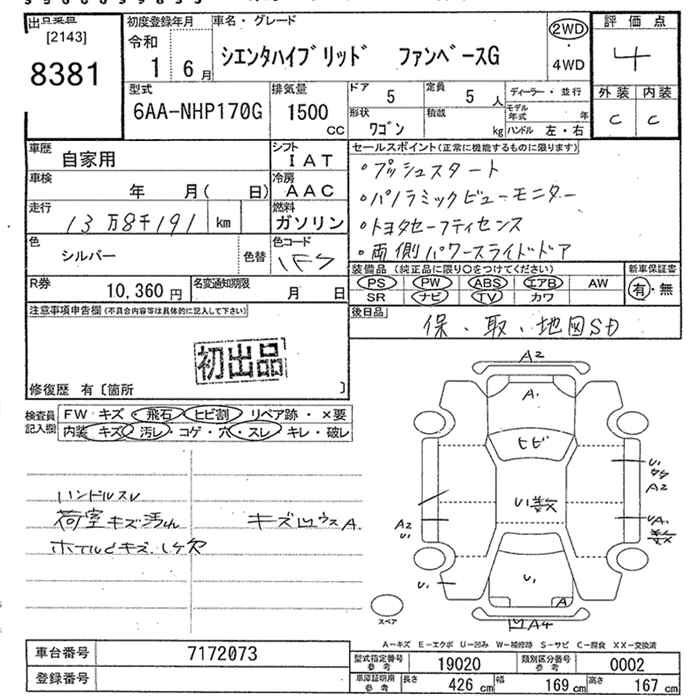 出品番
[2143]
8381
初度登録年月
令和
1 6月
車名・グレード
シエンタハイブリッド ファンベースG
2WD
・4WD
評価点
4
外装 内装
C C
型式
6AA-NHP170G
排気量
1500
CC
ドア
5
定員
5 人
形状
ワゴン
積載
kg
ディーラー・並行
モデル年式 年
ハンドル 左・右
車歴
自家用
シフト
IAT
車検
年 月( 日)
冷房
AAC
走行
13万8千191 km
燃料
ガソリン
色
シルバー
色替
色コード
1F7
R券
10,360 円
名変通知期限
月 日
セールスポイント(正常に機能するものに限ります)
・プッシュスタート
・パノラミックビューモニター
・トヨタセーフティセンス
・両側パワースライドドア
装備品(純正品に限り○をつけてください)
PS PW ABS エアB AW
SR ナビ TV カワ
新車保証書
有・無
後日品
保、取、地図SD
注意事項申告欄(不具合内容等は具体的に記入して下さい)
初出品
修復歴 有〔箇所 〕
検査員記入欄
FW キズ・飛石・ヒビ割 リペア跡・×要
内装 キズ・汚レ・コゲ・穴・スレ・キレ・破レ
ハンドルスレ
荷室キズ汚れ キズ凹ウスA.
A2
A.
ヒビ
U1
U1
A2
UA1
A2
U1
U1
U1
A
凹A4
スペア
A-キズ E-エクボ U-凹み W-補修跡 S-サビ C-腐食 XX-交換済
車台番号 7172073
登録番号
型式指定番号参考 19020
類別区分番号参考 0002
車庫証明用参考 長さ 426 cm 幅 169 cm 高さ 167 cm